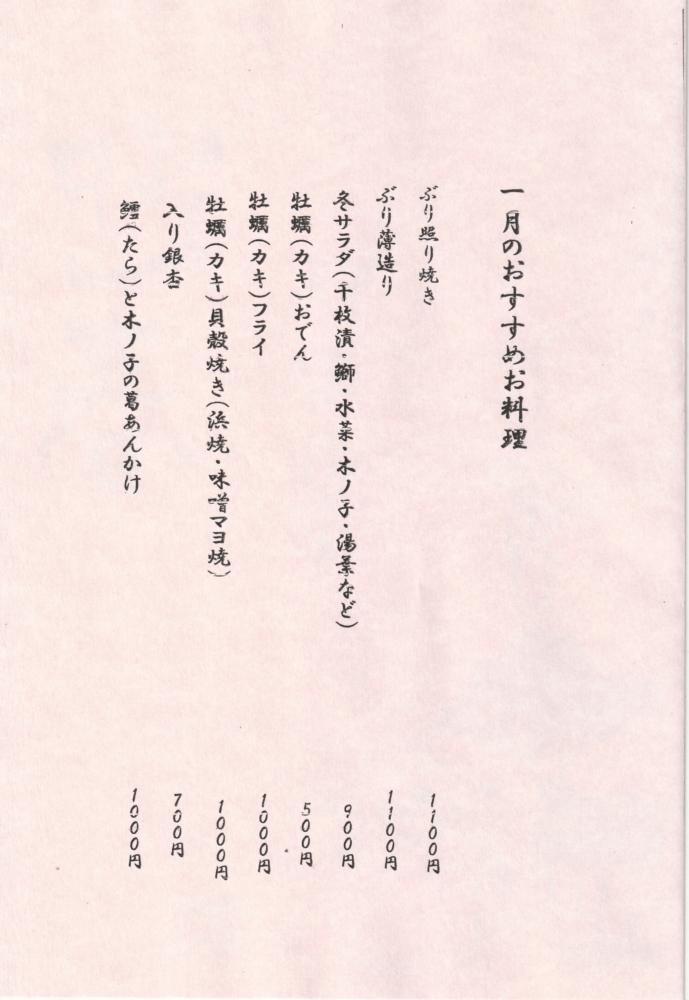 一月のおすすめお料理
ぶり照り焼き 1100円
ぶり薄造り 1100円
冬サラダ(千枚漬・鰤・水菜・木ノ子・湯葉など) 900円
牡蠣(カキ)おでん 500円
牡蠣(カキ)フライ 1000円
牡蠣(カキ)貝殻焼き(浜焼・味噌マヨ焼) 1000円
入り銀杏 700円
鱈(たら)と木ノ子の葛あんかけ 1000円